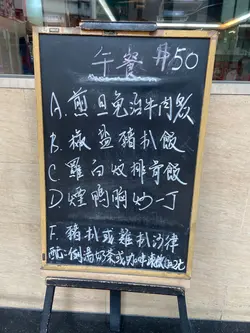 午餐 $50
A. 煎旦免治牛肉飯
B. 椒盐豬扒飯
C. 羅白炆排骨飯
D 煙鴨胸炒一丁
F. 豬扒或雞扒沙律
配:例湯奶茶或